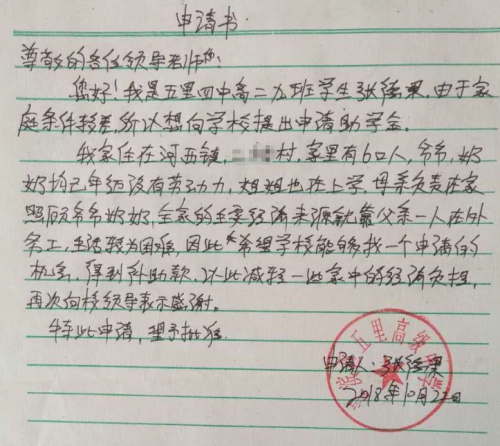 申请书
尊敬的各位领导老师:
您好!我是五里四中高二九班学生张经果,由于家
庭条件较差,所以想向学校提出申请助学金。
我家住在河西镇,村,家里有6口人,爷爷,奶
奶均已年迈没有劳动力,姐姐也在上学,母亲负责在家
照顾爷爷奶奶,全家的主要经济来源就靠父亲一人在外
务工,生活较为困难,因此希望学校能够找一个申请的
机会,得到补助款,以此减轻一些家中的经济负担,
再次向校领导表示感谢。
特此申请,望予批准.
五里高级中学
申请人:张经果
2018年10月22日